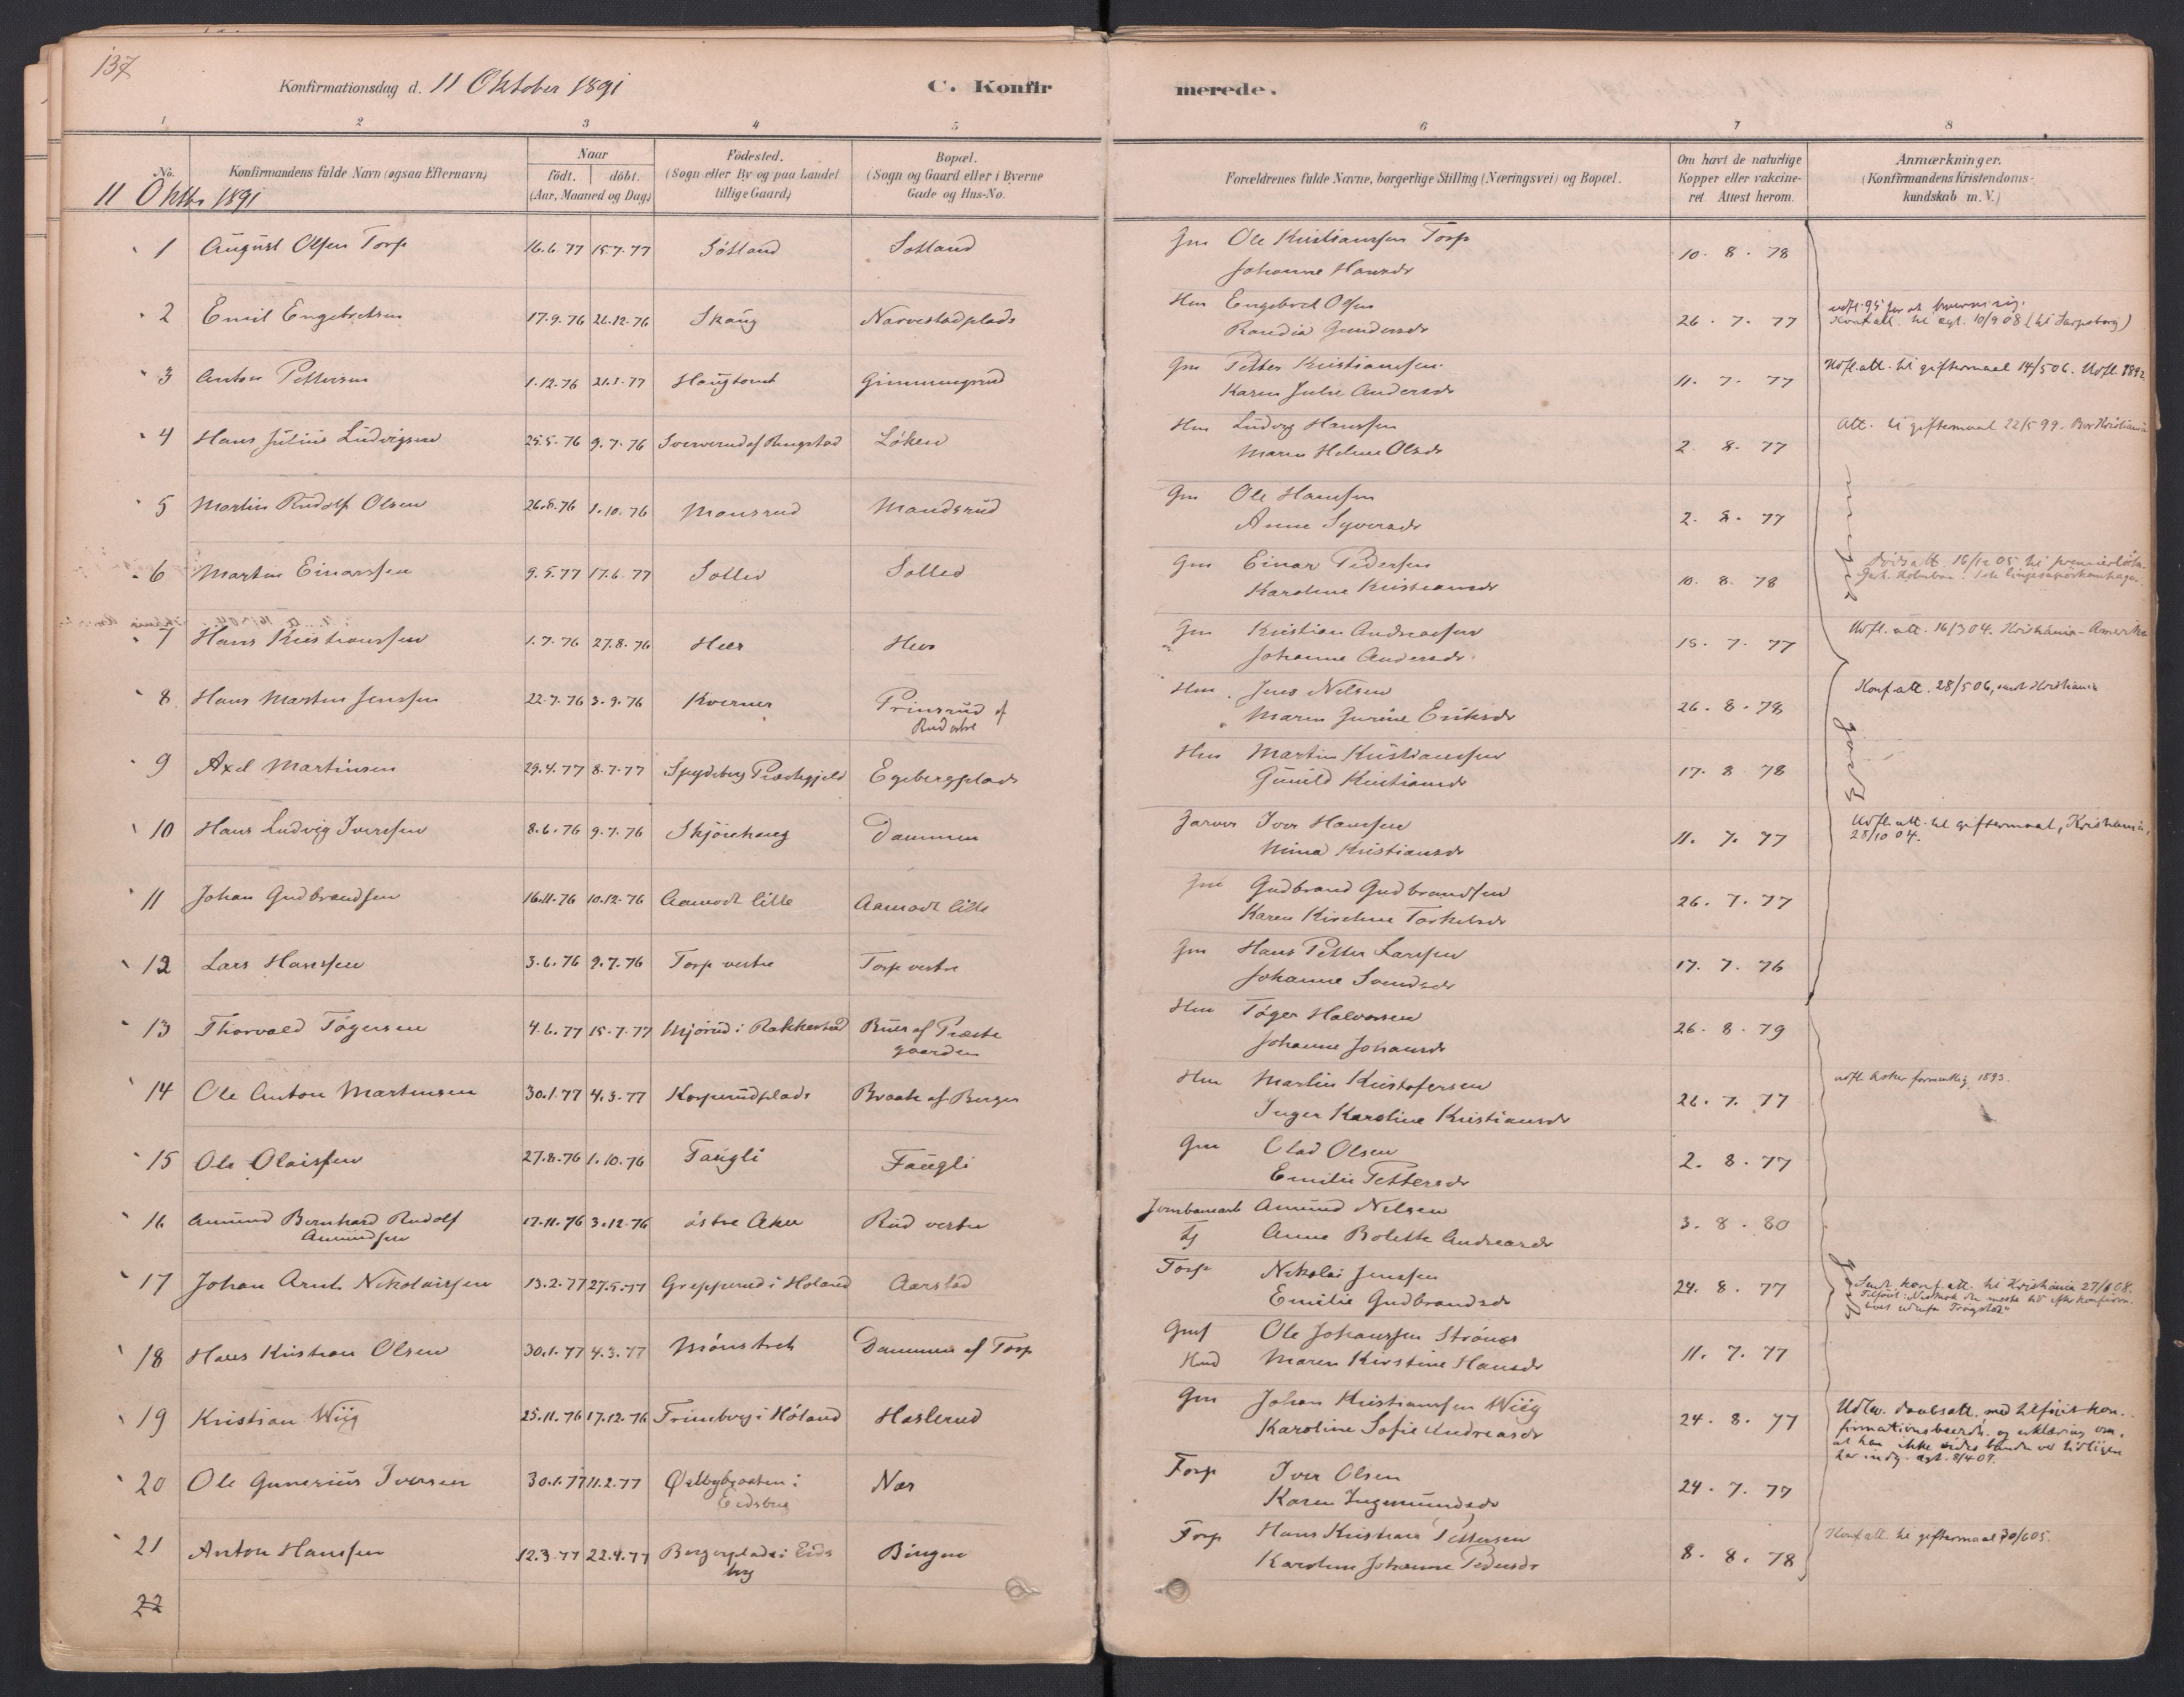 137
Konfirmationsdag d. 11 Oktober 1891
C. Konfir
merede.
1 2 3 4 5 6 7 8
No.
Konfirmandens fulde Navn (ogsaa Efternavn)
Naar
födt. | döbt.
(Aar, Maaned og Dag)
Födested.
(Sogn eller By og paa Landet
tillige Gaard)
Bopæl.
(Sogn og Gaard eller i Byerne
Gade og Hus-No.
Forældrenes fulde Navne, borgerlige Stilling (Næringsvei) og Bopæl.
Om havt de naturlige
Kopper eller vakcine-
ret. Attest herom.
Anmærkninger.
(Konfirmandens Kristendoms-
kundskab m. V.)
11 Oktbr 1891
1 August Olsen Torp 16.6.77 15.7.77 Sötland Sotland Gm Ole Kristianssen Torp 10. 8. 78
Johanne Hansdr
2 Emil Engebretsen 17.9.76 26.12.76 Skaug Narvestadplads Hm Engebret Olsen 26. 7. 77
Randia Gundersdr
Konf att. til ægt. 10/9 08 (til Sarpsborg)
3 Anton Pettersen 1.12.76 21.1.77 Haugtomt Gimmingsrud Gm Petter Kristianssen 11. 7. 77 Udfl.att. til giftermaal 14/5 06. Udfl. 1892
Karen Julie Andersdr
4 Hans Julius Ludvigsen 25.5.76 9.7.76 Løken Hm Ludvig Hanssen 2. 8. 77 Att. til giftermaal 22/5 99. Bor Kristiania
Maren Helene Olsdr
5 Martin Rudolf Olsen 26.8.76 1.10.76 Monsrud Mandsrud Gm Ole Hanssen 2. 8. 77
Anne Syversdr
meget
6 Martin Einarssen 9.5.77 17.6.77 Solled Solled Gm Einar Pedersen 10. 8. 78
Karoline Kristiansdr
7 Hans Kristianssen 1.7.76 27.8.76 Heer Heer Gm Kristian Andreassen 15. 7. 77 Udfl. att. 16/3 04. Kristiania - Amerika
Johanne Andersdr
8 Hans Martin Jenssen 22.7.76 3.9.76 Kverner Prinsrud af Hm Jens Nilsen 26. 8. 78 Konf att. 28/5 06, sendt Kristiania
Rud østre Maren Gurine Eriksdr
godt
9 Axel Martinsen 29.4.77 8.7.77 Spydeberg Præstegjeld Egebergplads Hm Martin Kristianssen 17. 8 78
Gunild Kristiansdr
10 Hans Ludvig Iverssen 8.6.76 9.7.76 Skjönhaug Dammen Garver Iver Hanssen 11. 7. 77 Udfl. att. til giftermaal, Kristiania,
Mina Kristiansdr 28/10 04.
11 Johan Gudbrandsen 16.11.76 10.12.76 Aamodt lille Aamodt lille Gm Gudbrand Gudbrandsen 26. 7. 77
Karen Kirstine Torkelsdr
12 Lars Hanssen 3.6.76 9.7.76 Torp vestre Torp vestre Gm Hans Petter Larssen 17. 7. 76
Johanne Svendsdr
13 Thorvald Tögersen 4.6.77 15.7.77 Mjörud i Rakkestad Buer af Præste Hm Töger Halvorsen 26. 8. 79
gaarden Johanne Johansdr
14 Ole Anton Martinsen 30.1.77 4.3.77 Korperudplads Braate af Berger Hm Martin Kristofersen 26. 7. 77
Inger Karoline Kristiansdr
15 Ole Olaissen 27.8.76 1.10.76 Faugli Faugli Gm Olad Olsen 2. 8. 77
Emilie Pettersdr
16 Amund Bernhard Rudolf 17.11.76 3.12.76 östre Aker Rud vestre Jernbanearb Amund Nelsen 3. 8. 80
Amundsen Anne Bolette Andreasdr
17 Johan Arnt Nikolaissen 13.2.77 27.5.77 Grepperud i Höland Aarstad Torp Nikolai Jenssen 24. 8. 77 Sendt konf.att. til Kristiania 27/1 08.
Emilie Gudbrandsdr
godt
18 Hans Kristian Olsen 30.1.77 4.3.77 Mönstret Dammen af Torp Ole Johanssen Strönes 11. 7. 77
Maren Kirstine Hansdr
19 Kristian Wiig 25.11.76 17.12.76 Trimborg i Höland Haslerud Gm Johan Kristianssen Wiig 24. 8. 77 Udlev. daabsatt. med tilföiet kon-
Karoline Sofie Andreasdr firmationsbevidn. og erklæring om,
at han ikke vides bunden ved tidligere
20 Ole Gunerius Iversen 30.1.77 11.2.77 Østbybraaten i Nes Torp Iver Olsen 24. 7. 77
Eidsberg Karen Ingemundsdr
21 Anton Hanssen 12.3.77 22.4.77 Bergerplads i Eids Bingen Torp Hans Kristian Pettersen 8. 8. 78 Konf att. til giftermaal 20/6 05.
berg Karoline Johanne Pedersdr
22